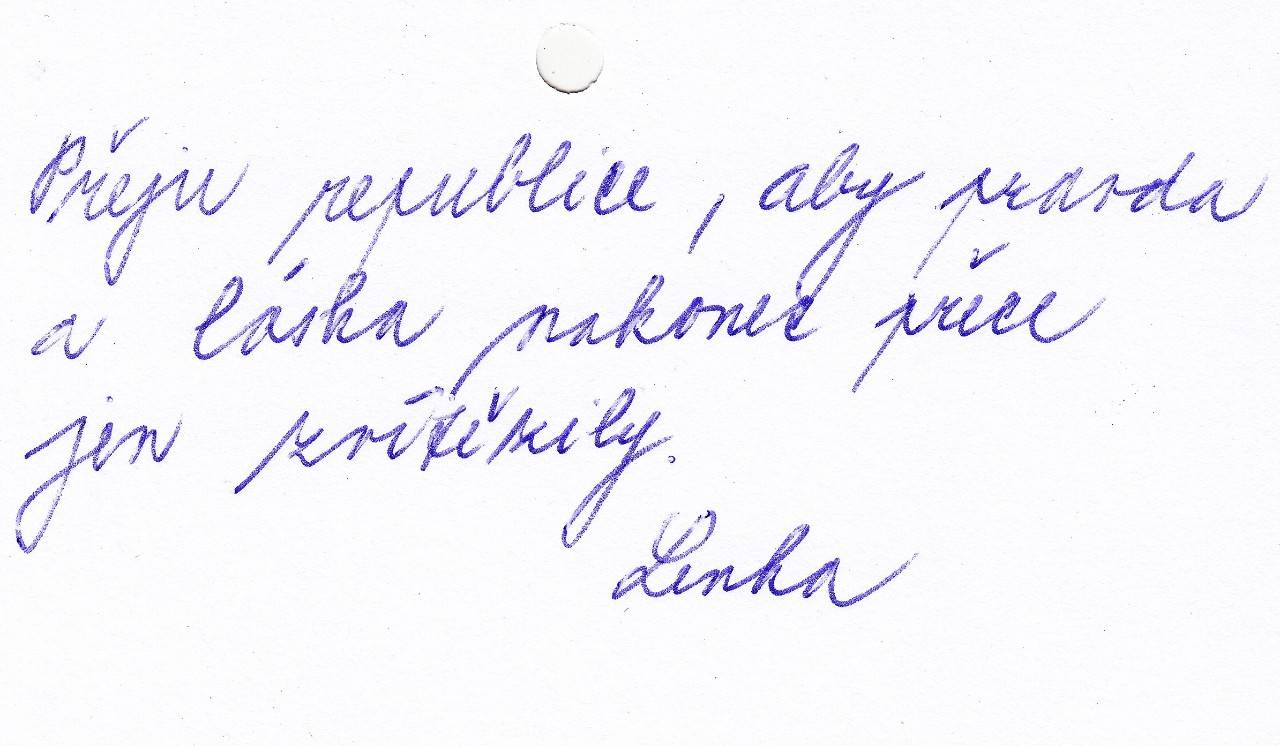 Přeju republice, aby pravda
a láska nakonec přece
jen zvítězily.
Lenka